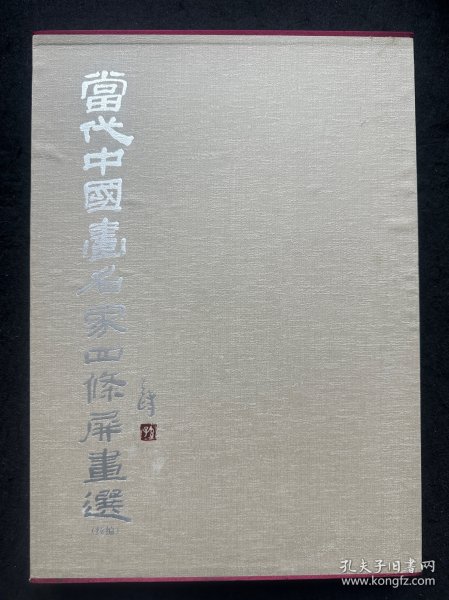 當代中國畫名家四條屏畫選
孔夫子旧书网
www.kongfz.com